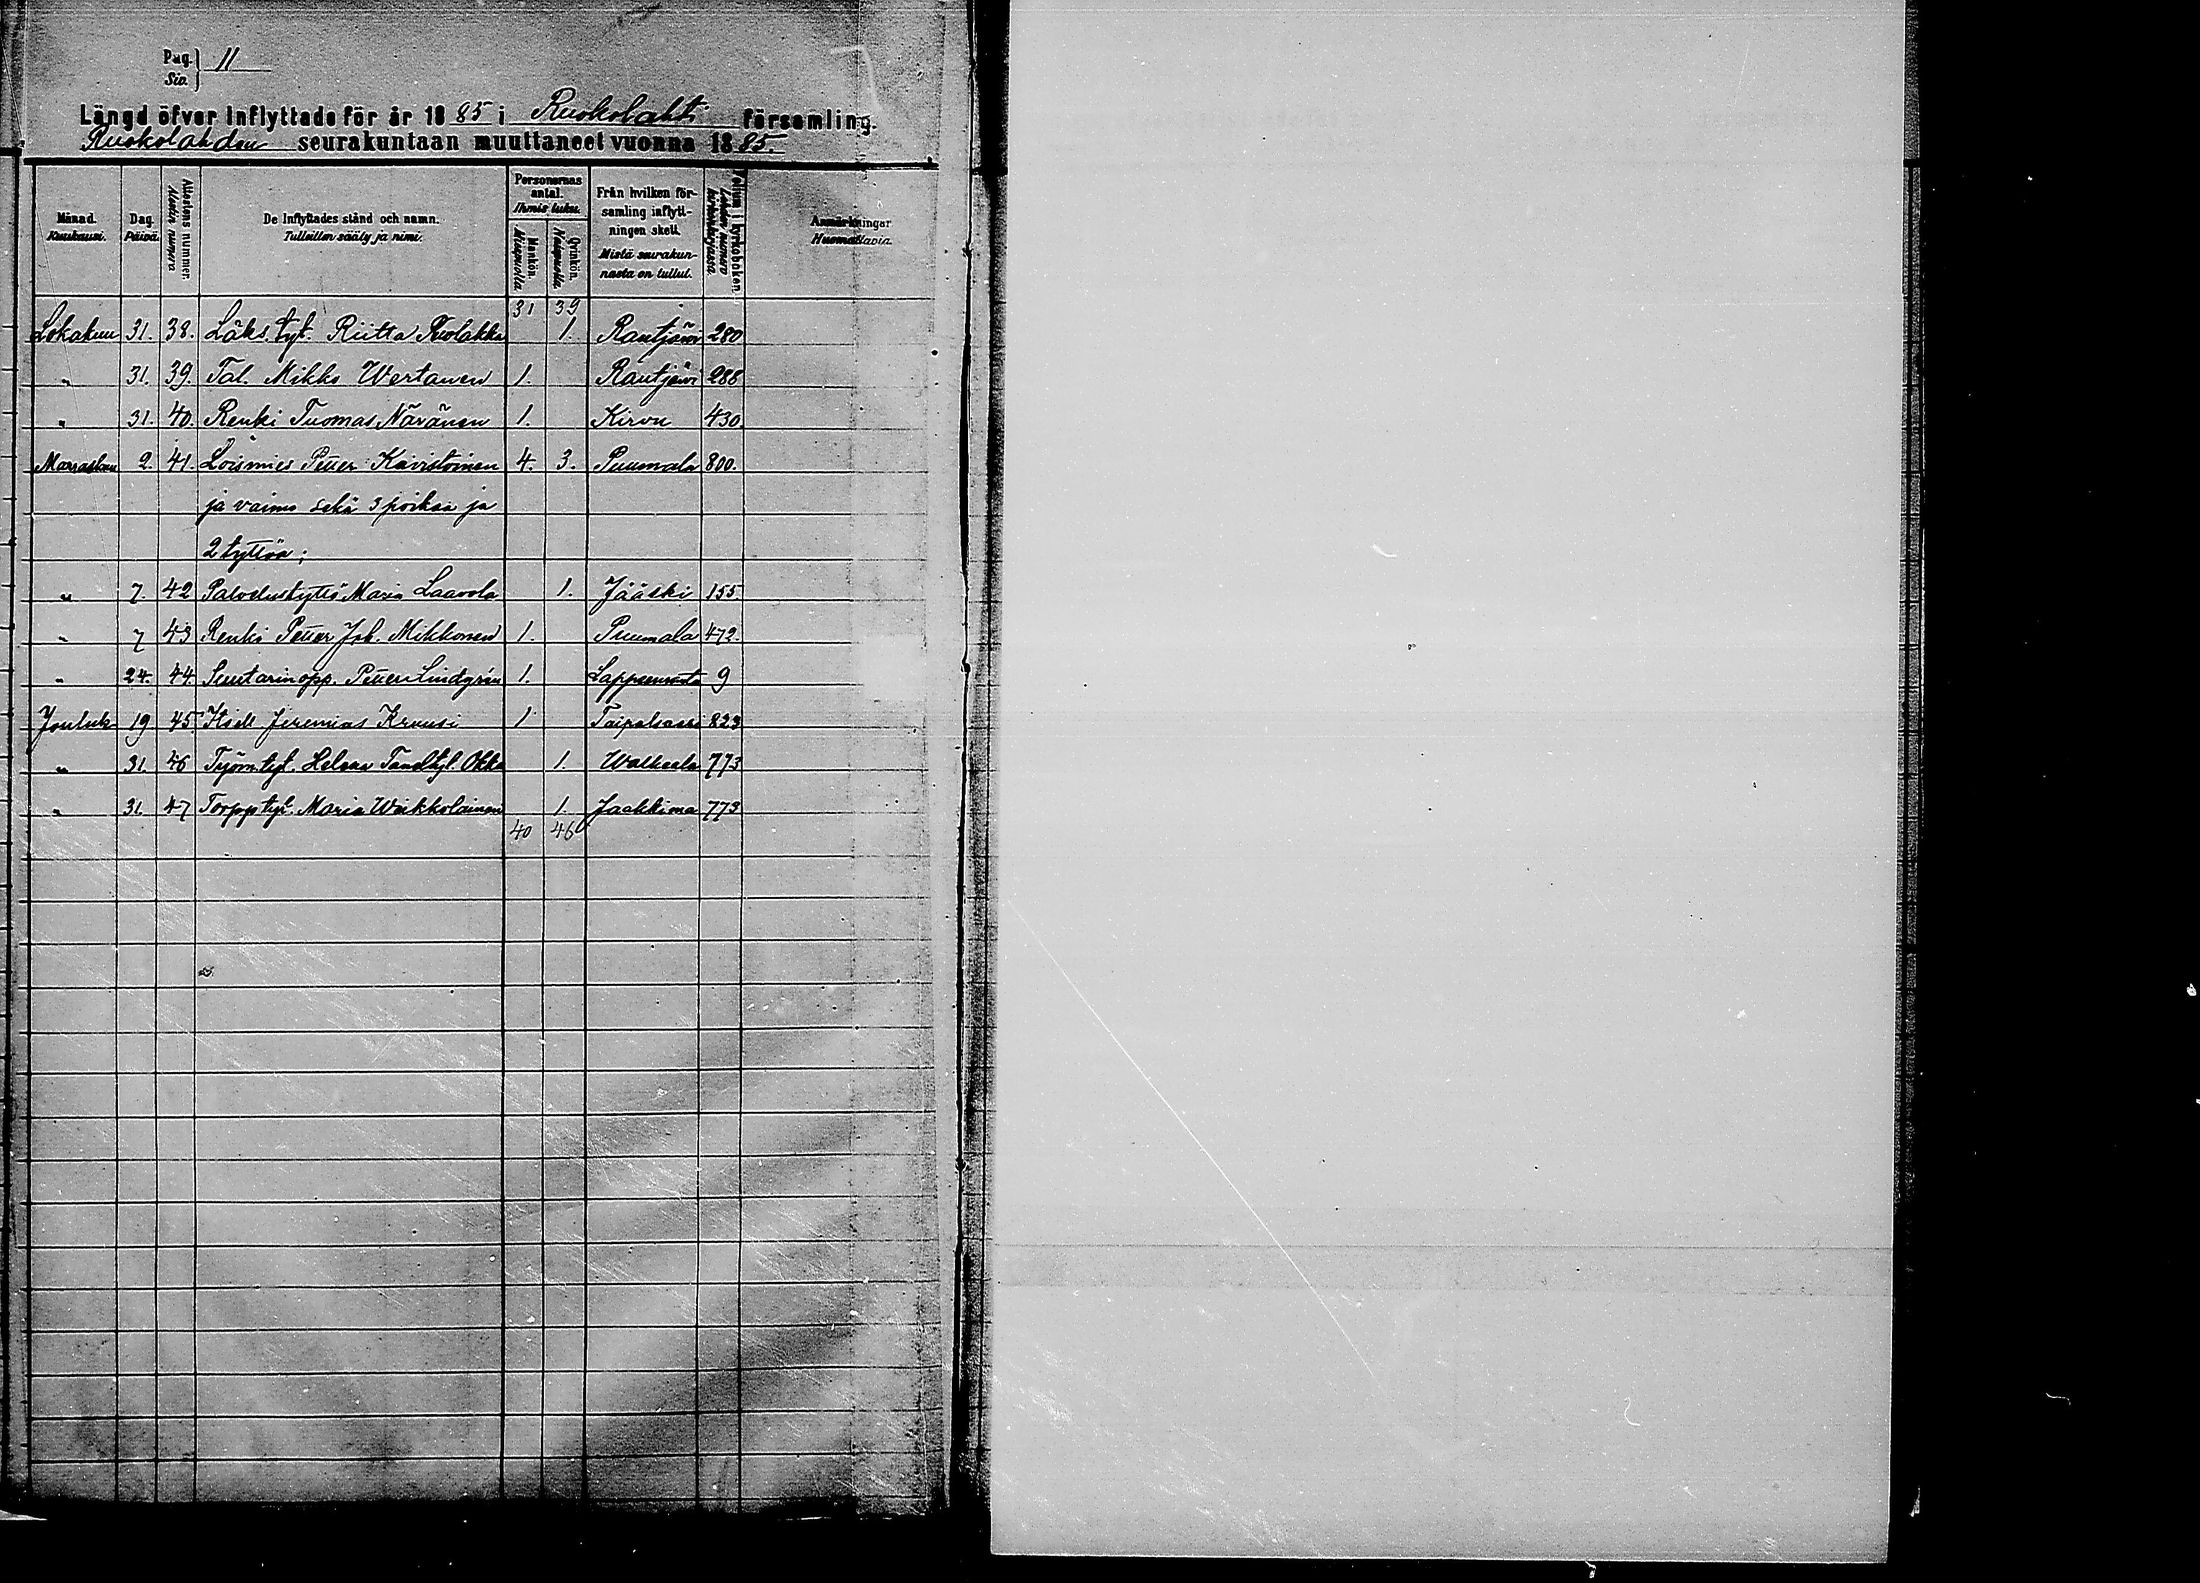 Pag. 11
Siv.
Längd öfver Inflyttade för år 1885 i Ruokolahti församling.
Ruokolahden seurakuntaan muuttaneet vuonna 1885.
Månad. Kuukausi.
Dag. Päivä.
Attestens nummer. Alestin numero
De Inflyttades stånd och namn. Tulleitten sääty ja nimi.
Personernas antal. Ihmis luku.
Mankön. Miespuolia.
Qvinkön. Naispuolia.
Från hvilken församling inflyttningen skett. Mistä seurakunnasta on tullut.
Folium i kyrkoboken. Lehden numero kirkonkirjassa.
Anmärkningar Huomattavia.
31 39
Lokakuu 31. 38. Läks. tyt. Riitta 1. Rautjärvi 280
" 31. 39. Tal. Mikko Wertanen 1. Rautjärvi 288
" 31. 40. Renki Tuomas Näränen 1. Kirvu 430.
Marraskuu 2. 41. Loismies Petter Kavistoinen 4. 3. Puumala 800.
ja vaimo sekä 3 poikaa ja
2 tyttöä;
" 7. 42 Palvelustyttö Maria Laavola 1. Jääski 155
" 7 43 Renki Petter Joh. Mikkonen 1. Puumala 472.
" 24. 44. Suutarinopp. Petter Lindgrén 1. Lappeenranta 9
Jouluk. 19 45. Itsell. Jeremias Kruusi 1 Taipalsaari 823
" 31. 46 Työm. tyt. Helena 1. Walkeala 773
" 31. 47 Torpp. tyt. Maria Waikkolainen 1. Jaakkima 773
40 46